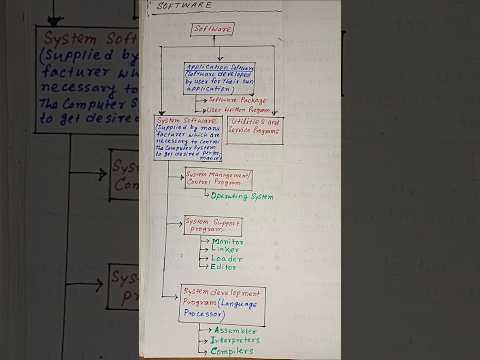 SOFTWARE
Software
Application Software
(Software developed
by user for their own
application)
Software Package
User Written Program
System Software
(Supplied by manu
facturer which are
necessary to control
The Computer System
to get desired perfor
mance)
Utilities and
Service Programs
System Management/
Control Program
Operating System
System Support
program
Monitor
Linker
Loader
Editor
System development
Program (Language
Processor)
Assembler
Interpreters
Compilers
System Soft
(Supplied by
facturer whic
necessary to
The Computer S
to get desired
Syst
Con
Syst
pr